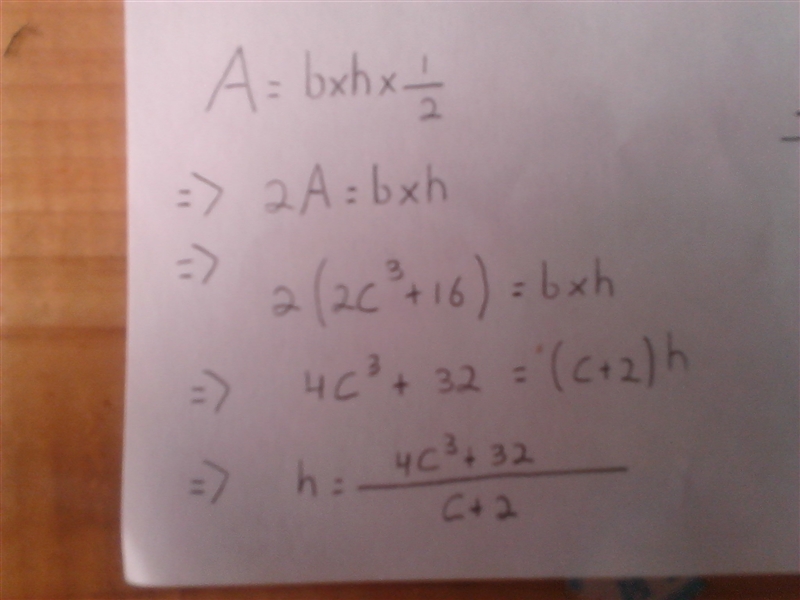 A = b×h×1/2
=> 2A = b×h
=> 2(2C³+16) = b×h
=> 4C³ + 32 = (C+2)h
=> h = (4C³+32)/(C+2)